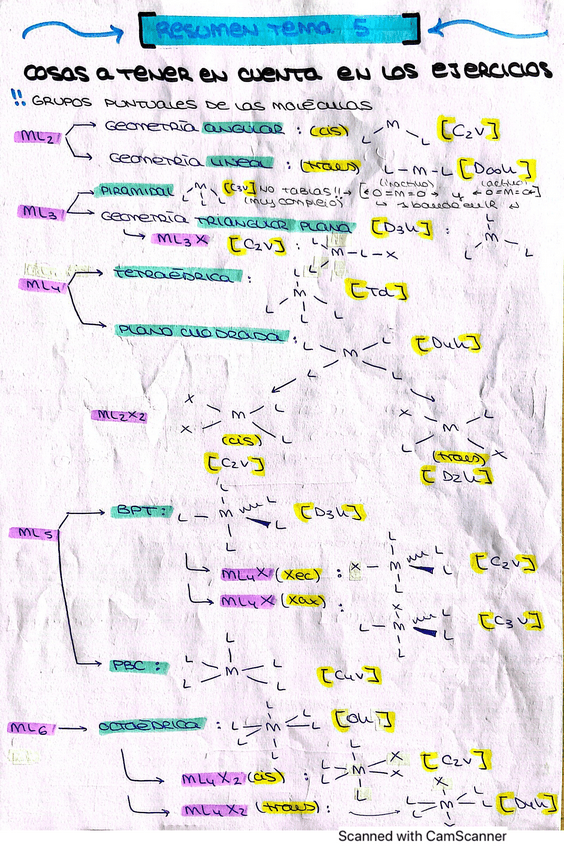 RESUMEN TEMA 5
COSAS A TENER EN CUENTA EN LOS EJERCICIOS
!! GRUPOS PUNTUALES DE LAS MOLÉCULAS
ML2
GEOMETRÍA ANGULAR : (cis) L M L [C2v]
GEOMETRÍA LINEAL : (trans) L-M-L [D∞h]
ML3
PIRAMIDAL M L L L [C3v] NO TABLAS!! → (inactivo) (activo)
(MUY COMPLEJO) ←O=M=O→ y ←O=M=O→
GEOMETRÍA TRIANGULAR PLANA [D3h] : L M L L
ML3X [C2v] : L L M-L-X
ML4
TETRAÉDRICA : L M L L L [Td]
PLANO CUADRADA : L L M L L [D4h]
ML2X2
X L X M L (cis) [C2v]
X L M L X (trans) [D2h]
ML5
BPT : L L-M L L L [D3h]
ML4X (Xec) : L X-M L L L [C2v]
ML4X (Xax) : X L-M L L L [C3v]
PBC : L L L M L L [C4v]
ML6 → OCTAÉDRICA : L L L M L L L [Oh]
ML4X2 (cis) : L L L M X X L [C2v]
ML4X2 (trans) : X L L M L L X [D4h]
Scanned with CamScanner